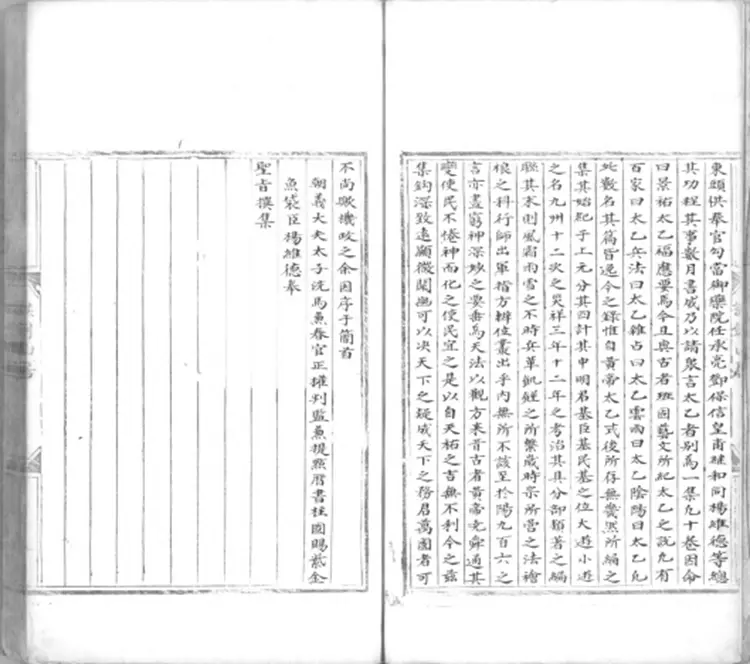 東頭供奉官勾當御藥院任承亮鄧保信皇甫繼和同楊維德等總
其功程其事數月書成乃以請衆言太乙者別為一集凡十卷因命
曰景祐太乙福應要為今且與古者班固藝文所紀太乙之說凡有
百家曰太乙兵法曰太乙雜占曰太乙雲雨曰太乙陰陽曰太乙凡
此數名其篇皆逸今之錄惟自黃帝太乙式後所存無幾然所編之
集其始紀于上元分其四計其申明君基臣基民基之位大遊小遊
之名九州十二次之災祥三年十二年之考治其具分部類著之編
聯其末則風霜雨雪之不時兵革飢饉之所繫歲時宗所营之法禬
禳之科行師出軍指方辨位叢出乎内無所不該至於陽九百六之
言亦盡窮神深妙之要垂為天法以觀方來昔古者黃帝堯舜通其
變使民不惓神而化之使民宜之是以自天祐之吉無不利今之兹
集鈎深致遠顯微闡幽可以决天下之疑成天下之務君萬國者可
不尚歟機政之余因序于簡首
朝義大夫太子洗馬兼春官正權判監兼提點曆書柱國賜紫金
魚袋臣楊維德奉
聖旨撰集